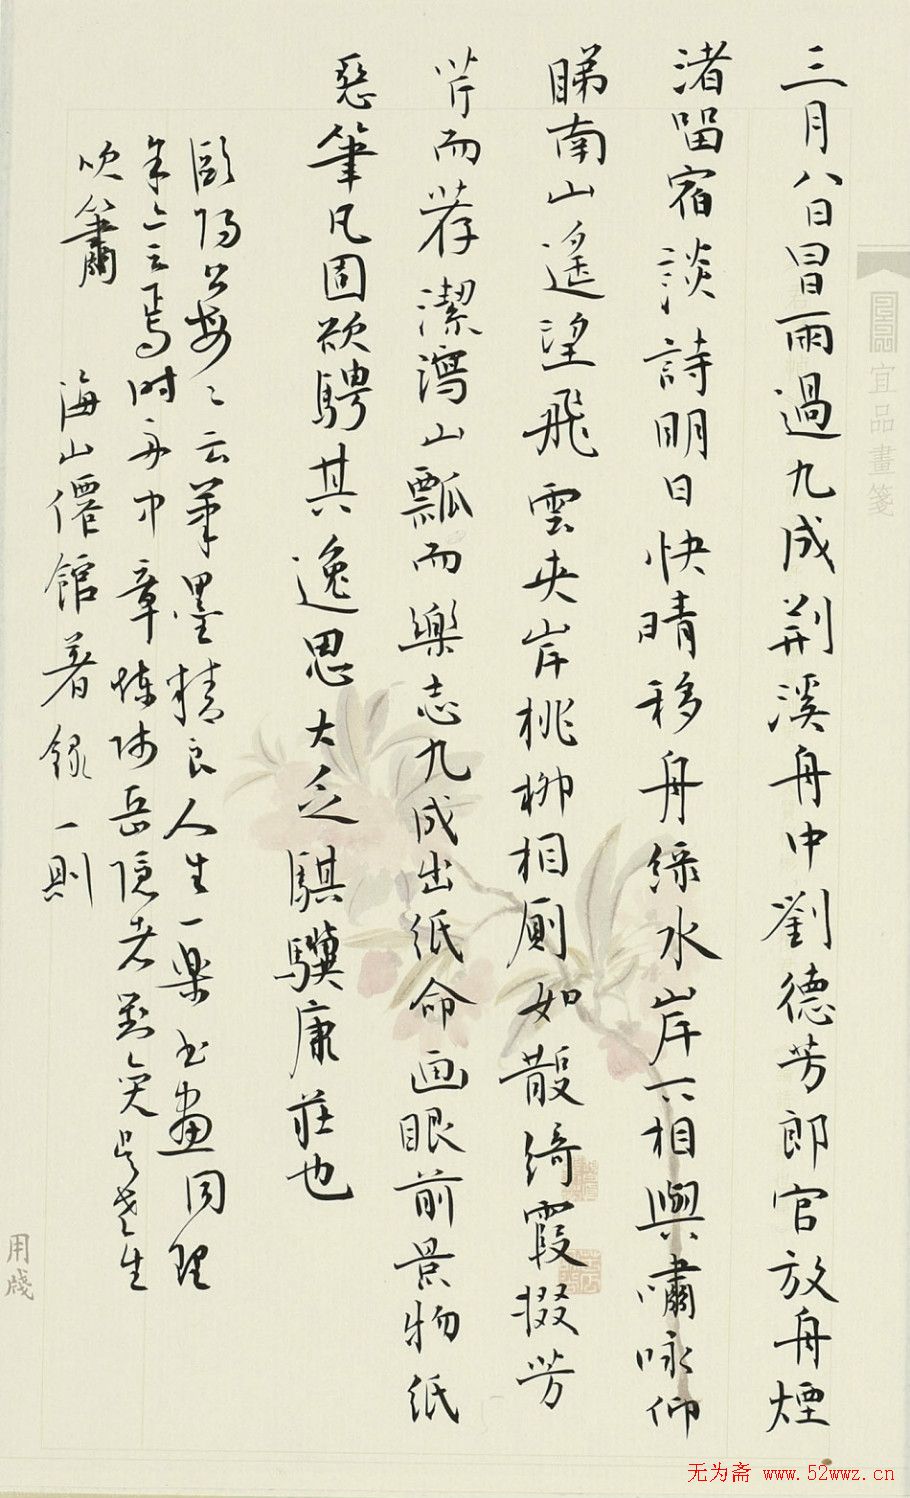 三月八日冒雨過九成荆溪舟中劉德芳郎官放舟煙
渚留宿談詩明日快晴移舟綠水岸下相與嘯咏仰
睇南山遥望飛雲夹岸桃柳相厠如散綺霞掇芳
芹而荐潔瀉山瓢而樂志九成出紙命画眼前景物紙
惡筆凡固欲騁其逸思大乏騏驥康莊也
歐陽公每云筆墨精良人生一樂書畫同理
余亦云焉時 章 岳隱者對 生
吹簫
海山僊館著錄一則
宜品畫箋
用牋
无为斋 www.52wwz.cn